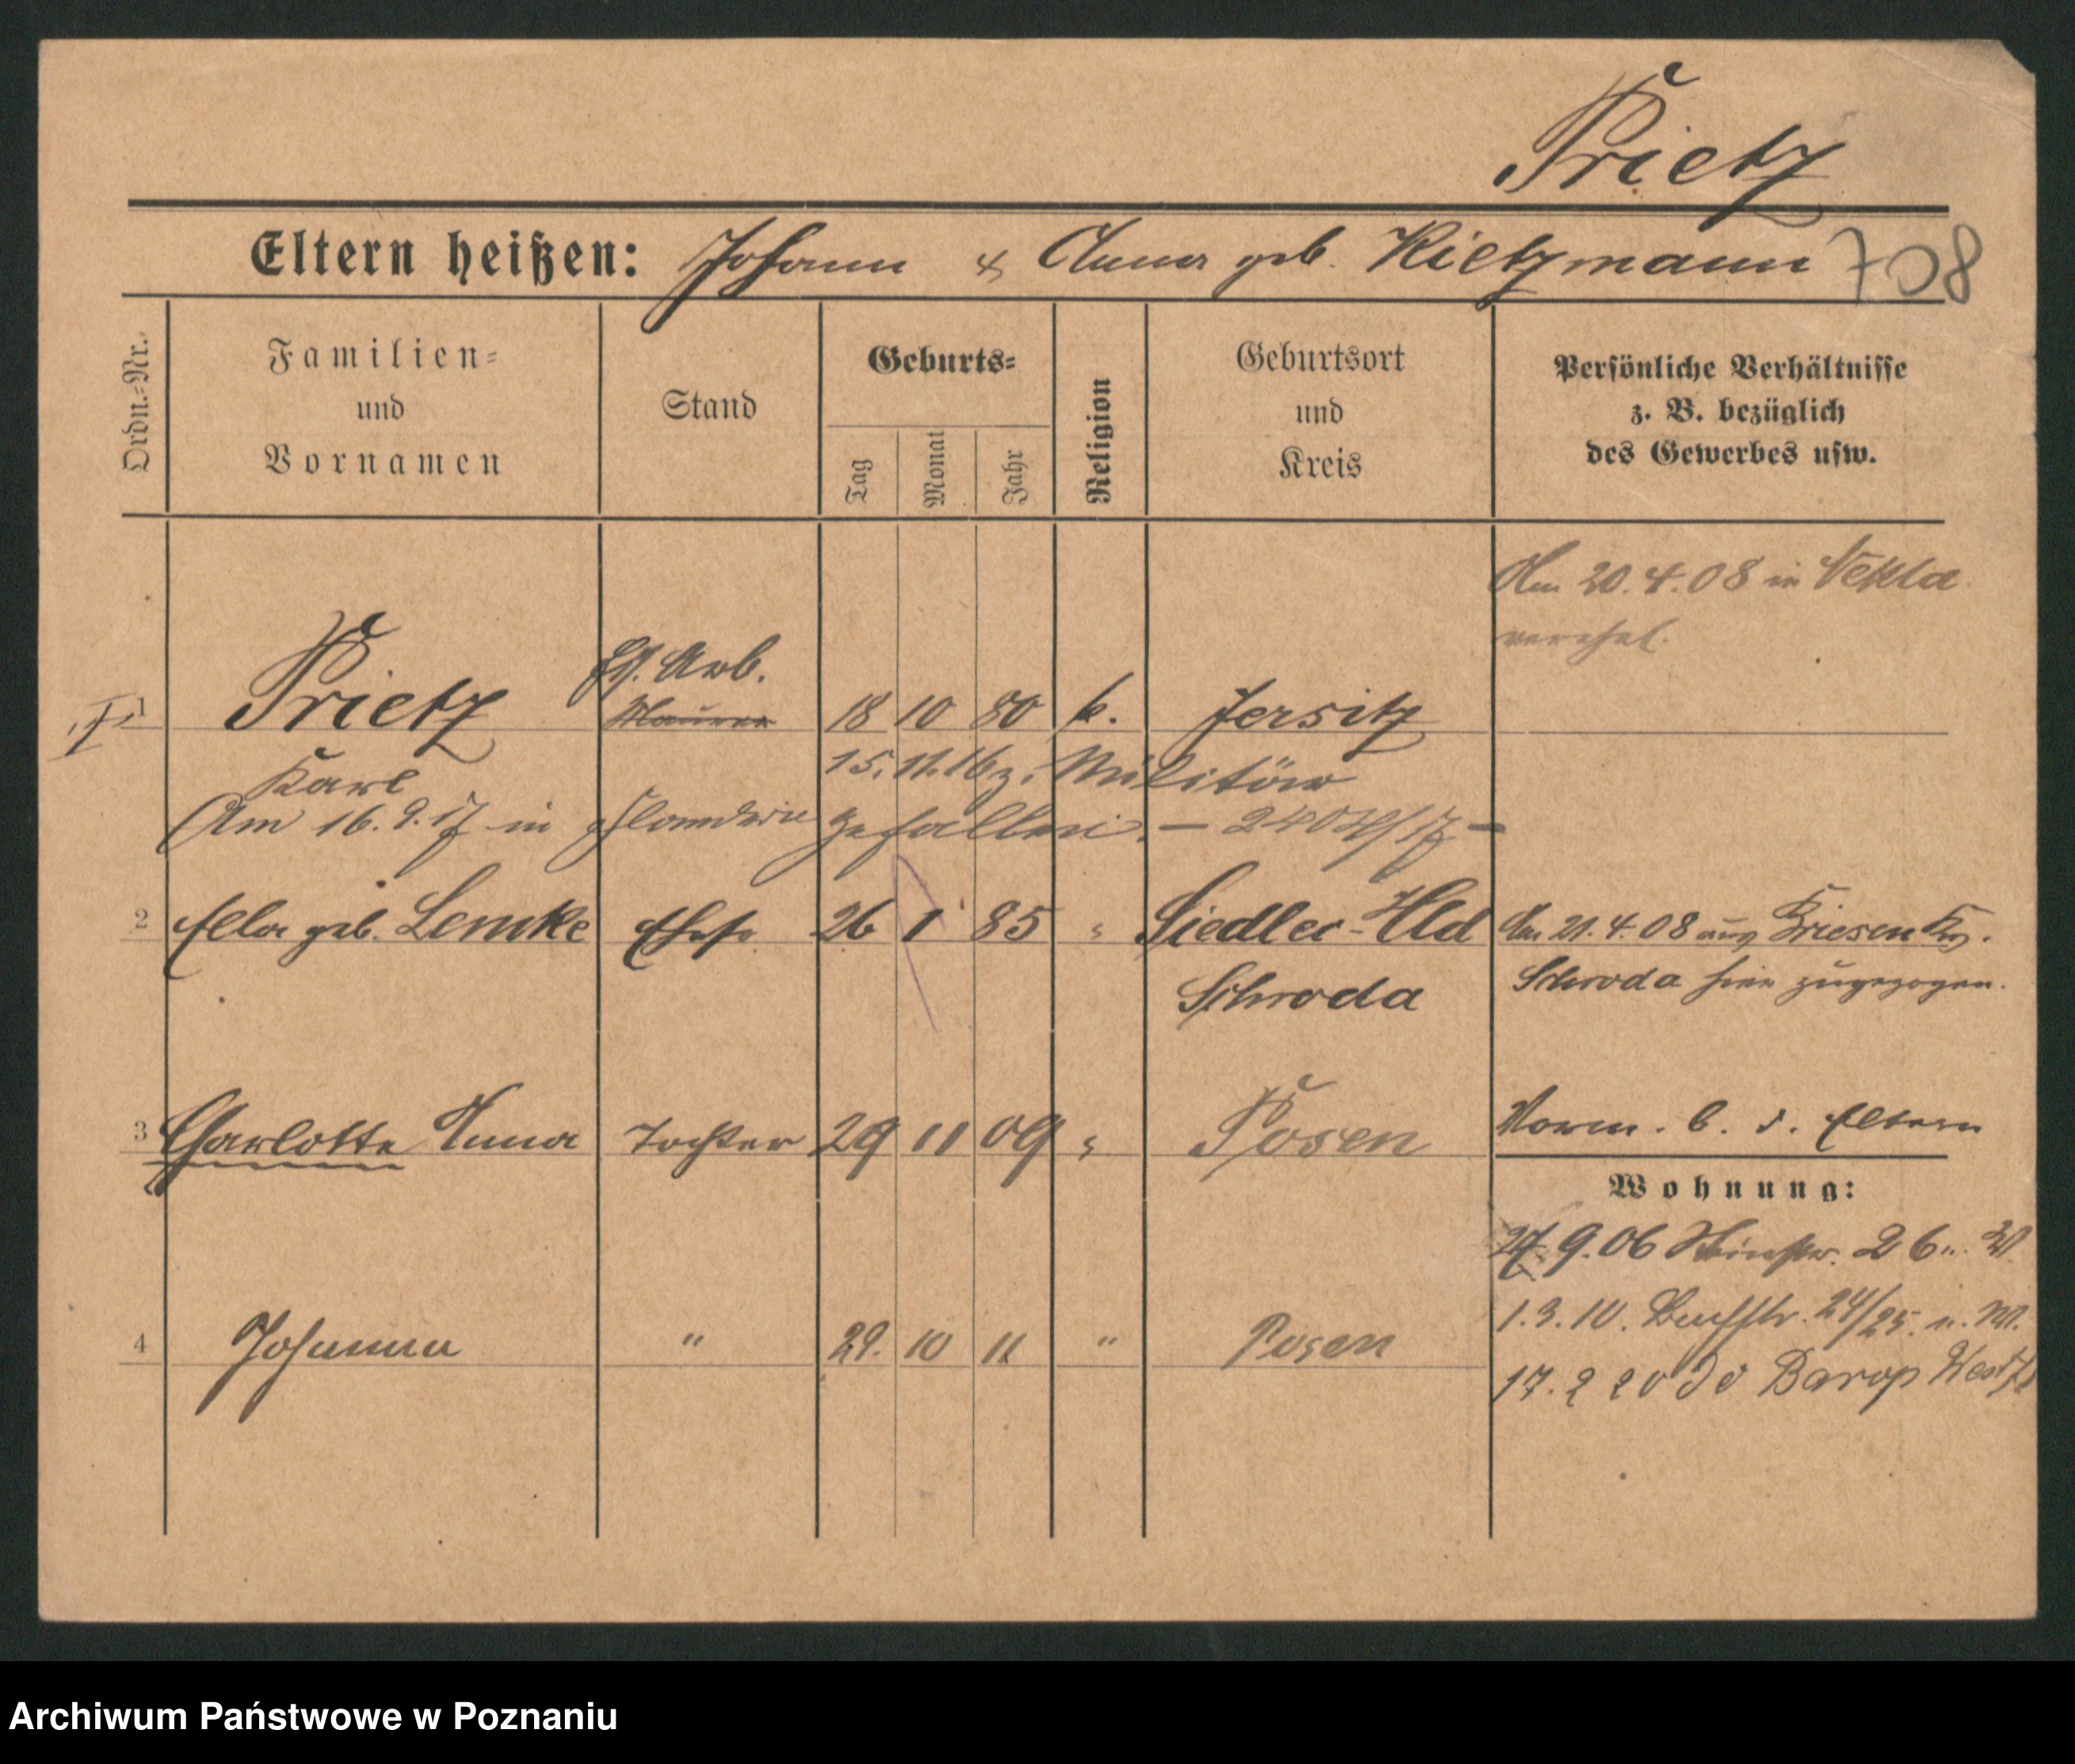 Prietz
Eltern heißen: Johann & Anna geb. Kietzmann 708
Ordn.-Nr.
Familien-
und
Vornamen
Stand
Geburts-
Tag
Monat
Jahr
Religion
Geburtsort
und
Kreis
Persönliche Verhältnisse
z. B. bezüglich
des Gewerbes usw.
Am 20.4.08 in Nekla
verehel.
Arb.
1 Prietz Maurer 18 10 80 k. Jersitz
Karl 15.11.16 z. Militär
Am 16.9.17 in Flandern gefallen.
2 Ella geb. Lemke Ehefr. 26 1 85 " Siedlec-Hld Am 21.4.08 aus Briesen Krs.
Schroda Schroda hier zugezogen.
3 Charlotte Anna Tochter 29 11 09 " Posen Vorm. b. d. Eltern
Wohnung:
9.06 26
4 Johanna " 29. 10 11 " Posen 1.3.10. 24/25.
17.2 20 Barop Westf.
Archiwum Państwowe w Poznaniu